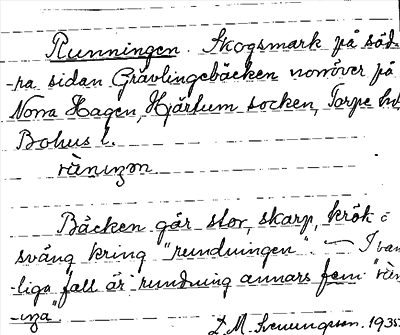 Runningen. Skogsmark på söd-
-ra sidan Grävlingebäcken norröver på
Norra Hagen, Hjärtum socken, Torpe hd,
Bohus l.
Bäcken går stor, skarp, krök i
sväng kring "rundningen". — I van
-liga fall är rundning annars fem "rän
-nga"
D. M. Svenungsson. 1935